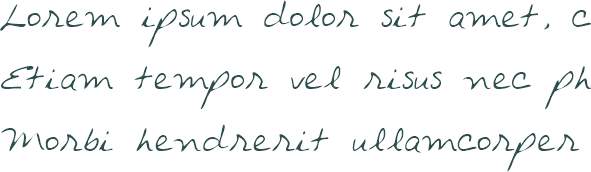 Lorem ipsum dolor sit amet, c
Etiam tempor vel risus nec ph
Morbi hendrerit ullamcorper